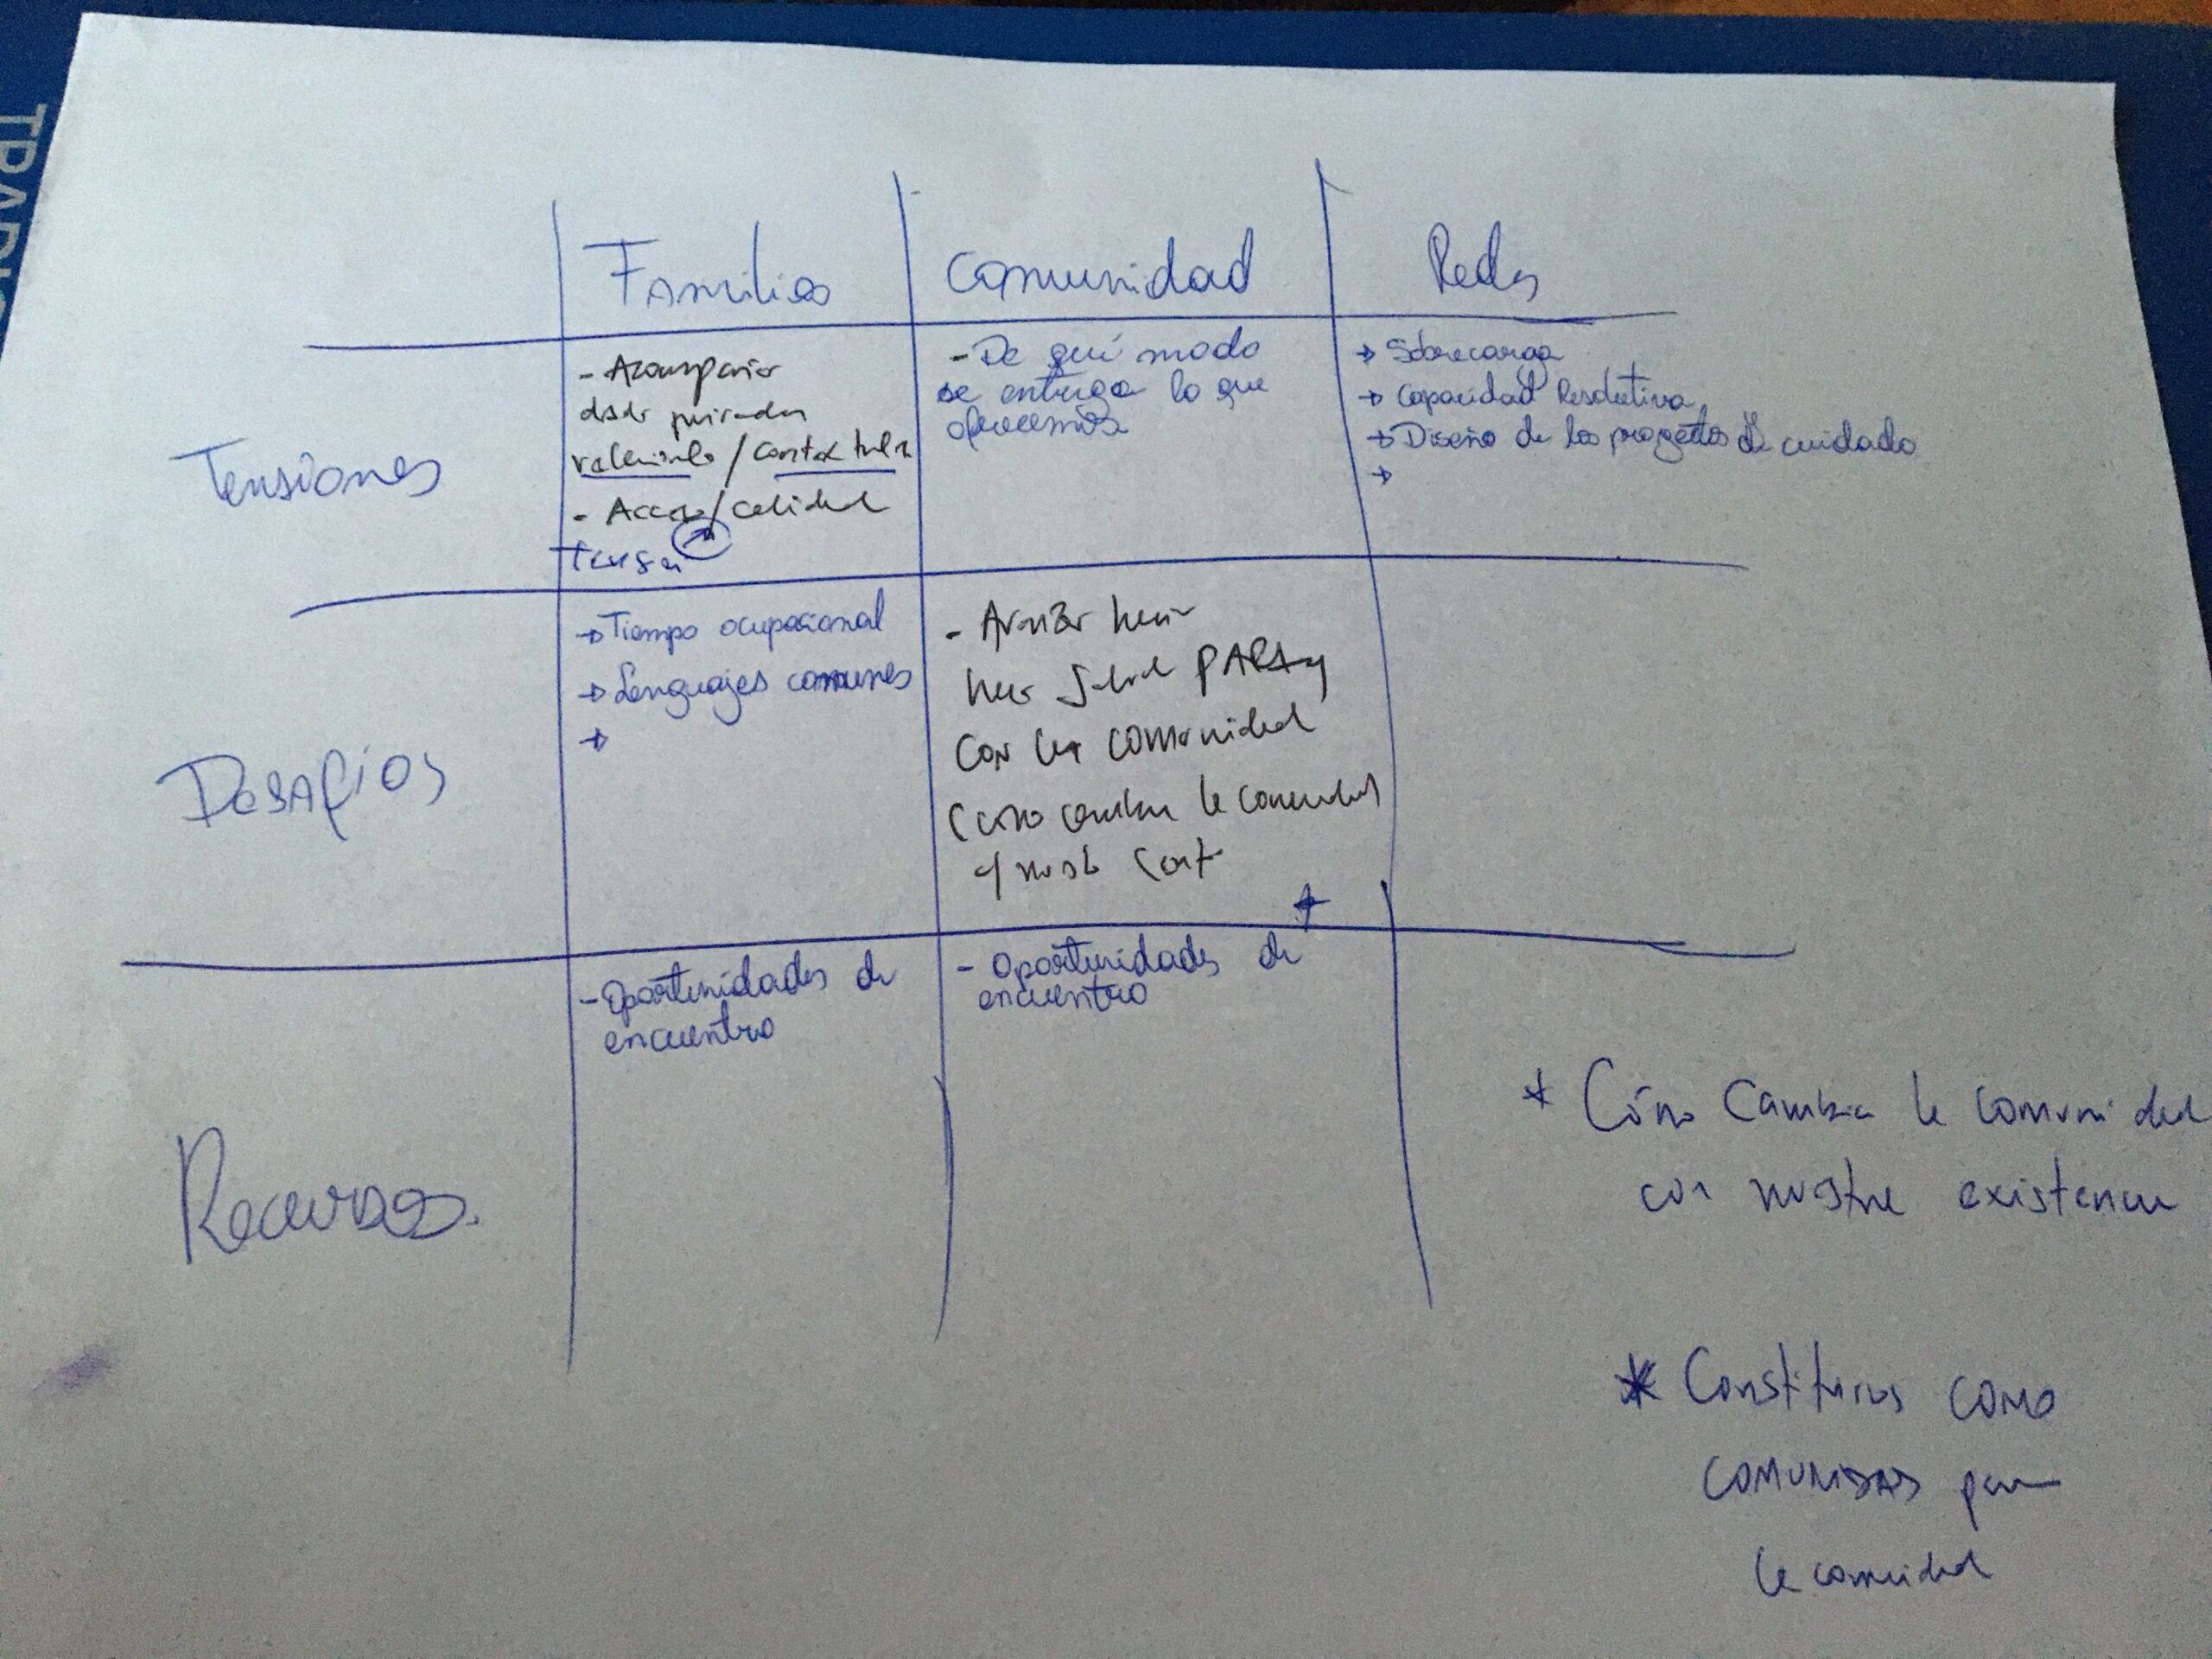 Familias
Comunidad
Redes
Tensiones
- Acompañar
desde miradas
/ contextuales
- Acceso / calidad
Tensión
- De qué modo
se entrega lo que
ofrecemos
→ Sobrecarga
→ Capacidad Resolutiva
→ Diseño de los proyectos de cuidado
→
Desafíos
→ Tiempo ocupacional
→ Lenguajes comunes
→
- Avanzar hacia
hacer salud PARA y
con la comunidad
(como cambia la comunidad
- Oportunidades de
encuentro
- Oportunidades de
encuentro
Recursos.
* Cómo cambia la comunidad
con nuestra existencia
* Constituirnos como
comunidad para
la comunidad